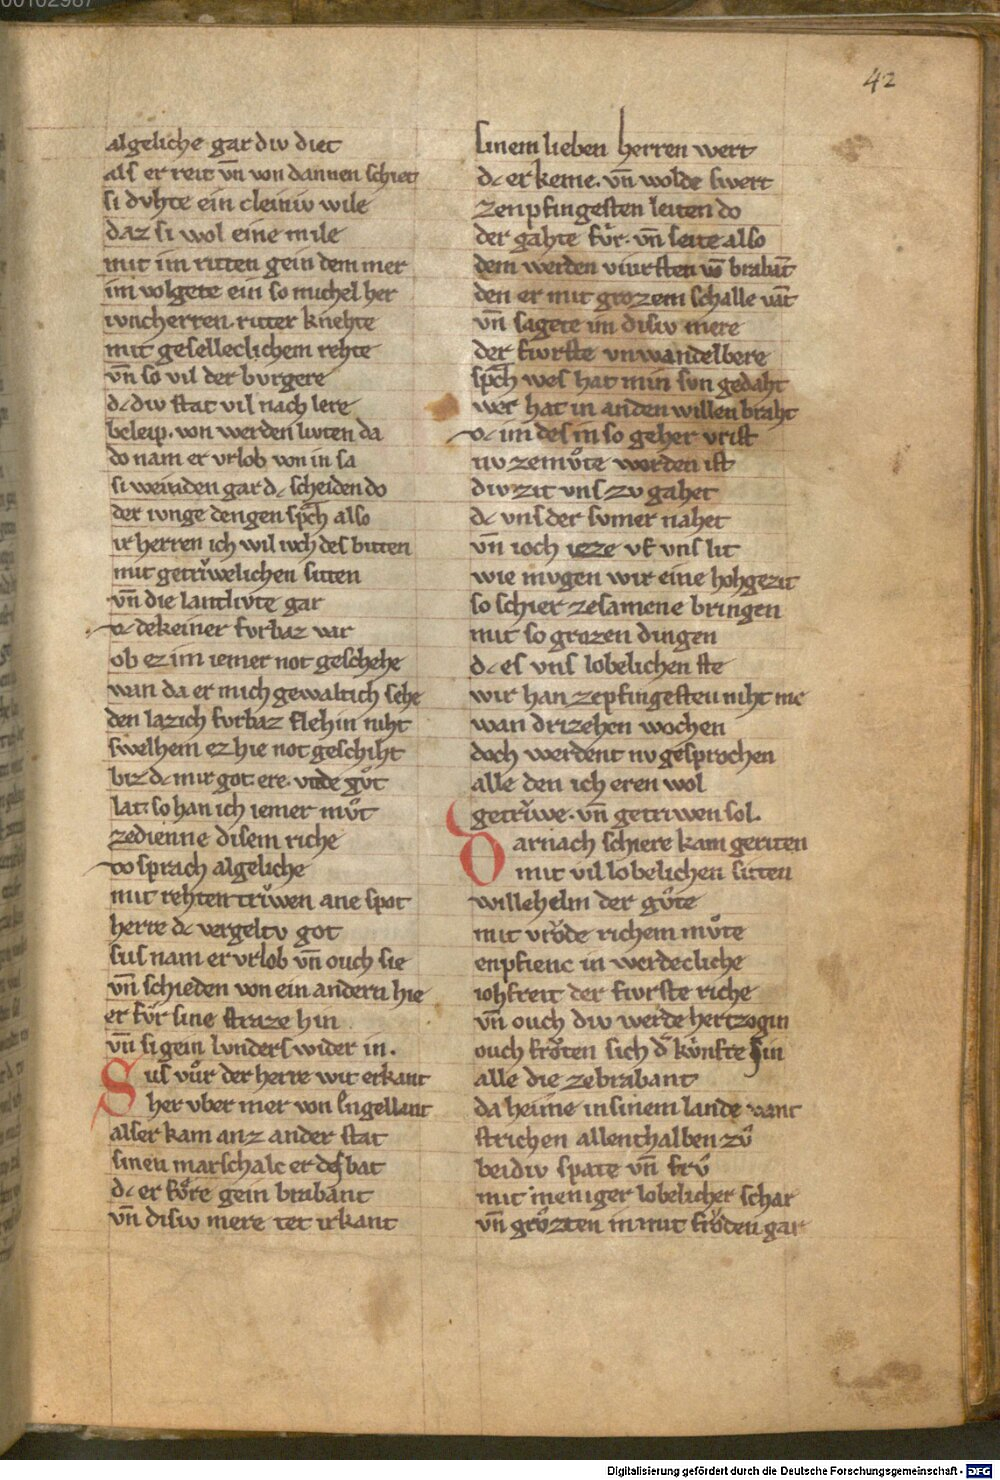 42
algeliche gar div diet
als er reit vn̄ von dannen schiet
si dvhte ein cleiniv wile
daz si wol eine mile
mit im ritten gein dem mer
im volgete ein so michel her
ivncherren. ritter knehte
mit geselleclichem rehte
vn̄ so vil der bvrgere
dc div stat vil nach lere
beleip. von werden livten da
do nam er vrlob von in sa
si weinden gar dc scheiden do
der ivnge dengen sp̄ch also
ir herren ich wil ivch des bitten
mit getrv̍welichen sitten
vn̄ die lantlivte gar
dc dekeiner fvrbaz var
ob ez im iemer not geschehe
wan da er mich gewaltich sehe
den lazich fvrbaz flehin niht
swelhem ez hie not geschiht
biz dc mir got ere. vnde gv̊t
lat: so han ich iemer mv̊t
zedienne disem riche
do sprach algeliche
mit rehten trv̍wen ane spot
herre dc vergeltv got
sus nam er vrlob vn̄ ouch sie
vn̄ schieden von ein andern hie
er fv̊r sine straze hin
vn̄ si gein lvnders wider in.
Sus vv̊r der herre wit erkant
her vber mer von Engellant
alser kam anz ander stat
sinen marschalc er des bat
dc er fv̊re gein brabant
vn̄ disiv mere tet irkant
sinem lieben herren wert
dc er keme. vn̄ wolde swert
zenpfingesten leiten do
der gahte fv̊r. vn̄ seite also
dem werden vivrsten vō brabāt
den er mit grozem schalle vāt
vn̄ sagete im disiv mere
der fivrste vnwandelbere
sp̄ch wes hat min svn gedaht
wer hat in an den willen braht
dc im des in so geher vrist
nv zemv̊te worden ist
div zit vns zv gahet
dc vns der svmer nahet
vn̄ ioch ieze vf vns lit
wie mvgen wir eine hohgezit
so schier zesamene bringen
mit so grozen dingen
dc es vns lobelichen ste
wir han zepfingesten niht me
wan drizehen wochen
doch werdent nv gesprochen
alle den ich eren wol
getrv̍we. vn̄ getriwen sol.
Darnach schiere kam geriten
mit vil lobelichen sitten
willehelm der gv̊te
mit vrȯ̊de richem mv̊te
enpfienc in werdecliche
iohfreit der fivrste riche
vn̄ ouch div werde hertzogin
ouch frȯ̊ten sich d' kv̊nfte sin
alle die zebrabant
da heime in sinem lande vant
strichen allenthalben zv̊
beidiv spate vn̄ frv̊
mit meniger lobelicher schar
vn̄ grv̊zten in mit frȯ̊den gar
Digitalisierung gefördert durch die Deutsche Forschungsgemeinschaft - DFG